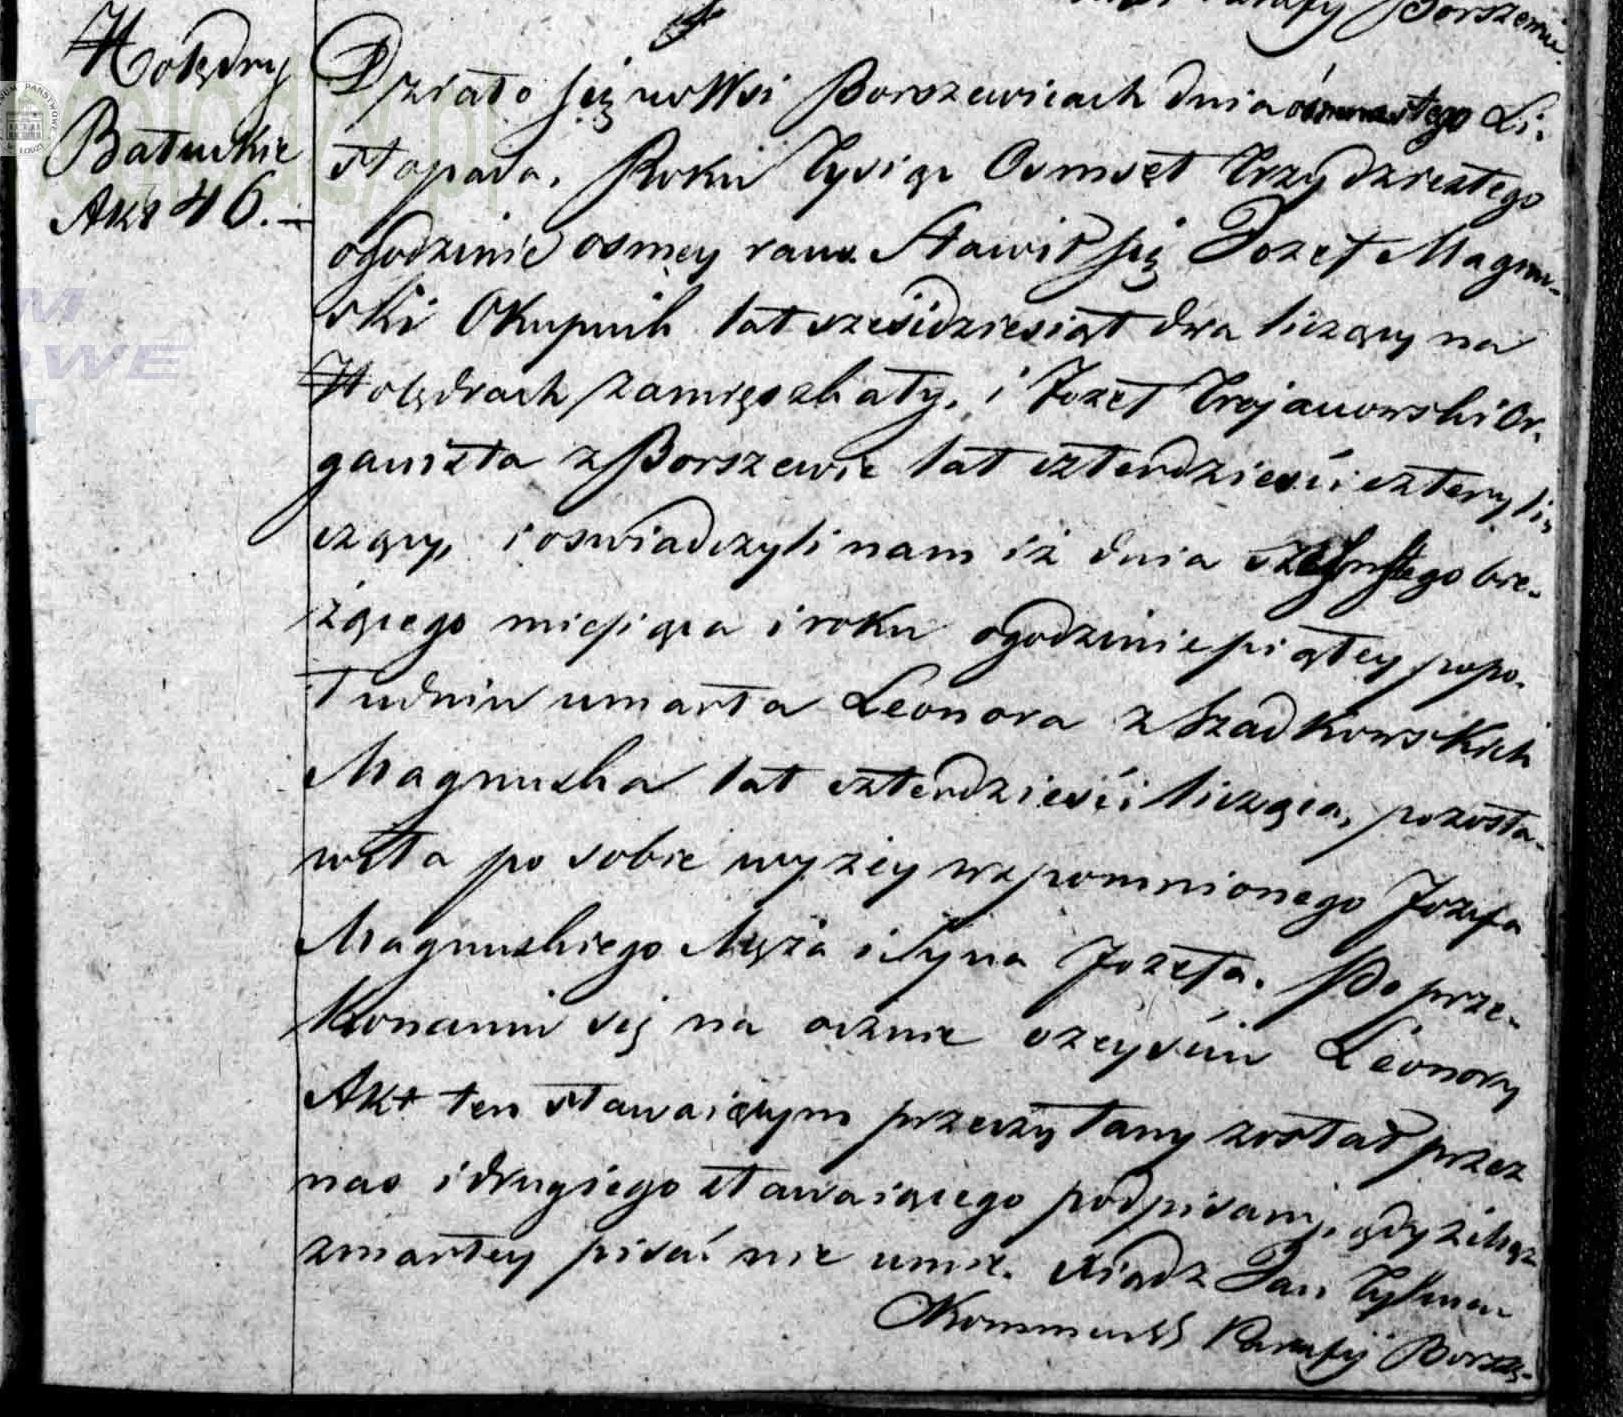 Parafij Borszewic
Holędry
Bałuckie
Akt 46.
Działo się w Wsi Borszewicach dnia ósmnastego Li-
stopada, Roku Tysiąc Osmset Trzydziestego
o godzinie osmey rano. Stawił się Jozef Magnu-
ski Okupnik lat sześćdziesiąt dwa liczący na
Holędrach zamięszkały, i Jozef Trojanowski Or-
ganista z Borszewic lat czterdzieści cztery li-
czący, i oswiadczyli nam iż dnia szesnastego bie-
żącego miesiąca i roku o godzinie piątey po po-
łudniu umarła Leonora z Szadkowskich
Magnuska lat czterdzieści licząca, pozosta-
wiła po sobie wyżey wspomnionego Jozefa
Magnuskiego Męża i Syna Jozefa. Po prze-
konaniu się na ocznie o zeyściu Leonory
Akt ten stawaiącym przeczytany został przez
nas i drugiego stawaiącego podpisany, gdyż Mąż
zmarłey pisać nie umie. Xiądz Jan
Kommend Parafij Borsze-